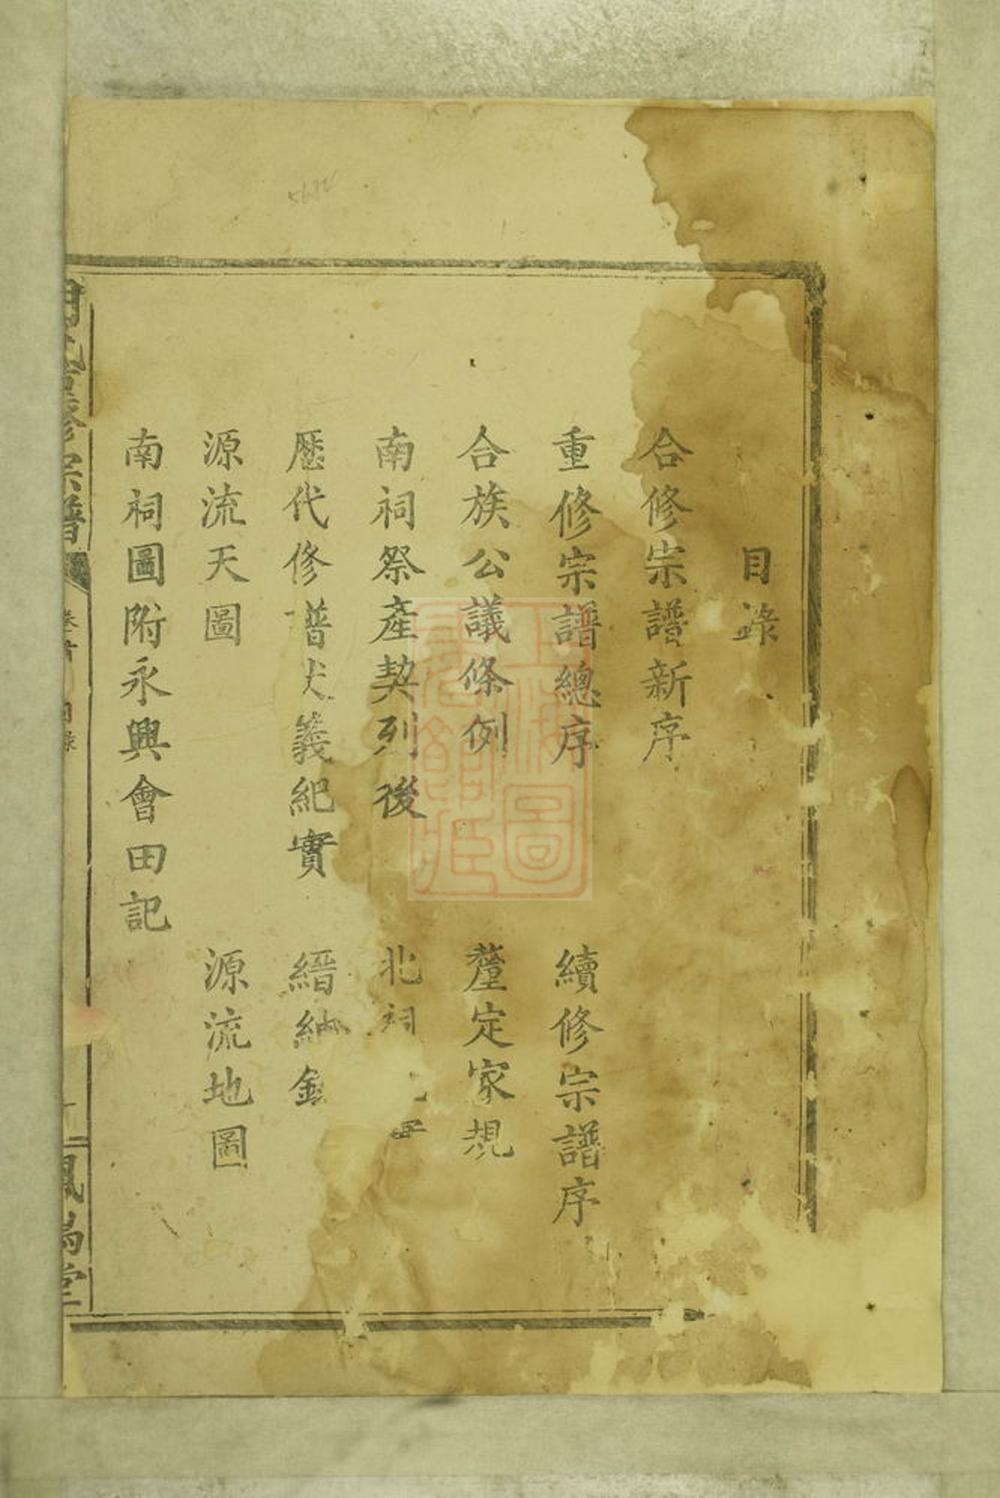 目錄
合修宗譜新序
重修宗譜總序 續修宗譜序
合族公議條例 釐定家規
南祠祭產契列後 北祠
歷代修譜尖義紀實 縉紳錄
源流天圖 源流地圖
南祠圖附永興會田記
修宗譜 卷首 目錄